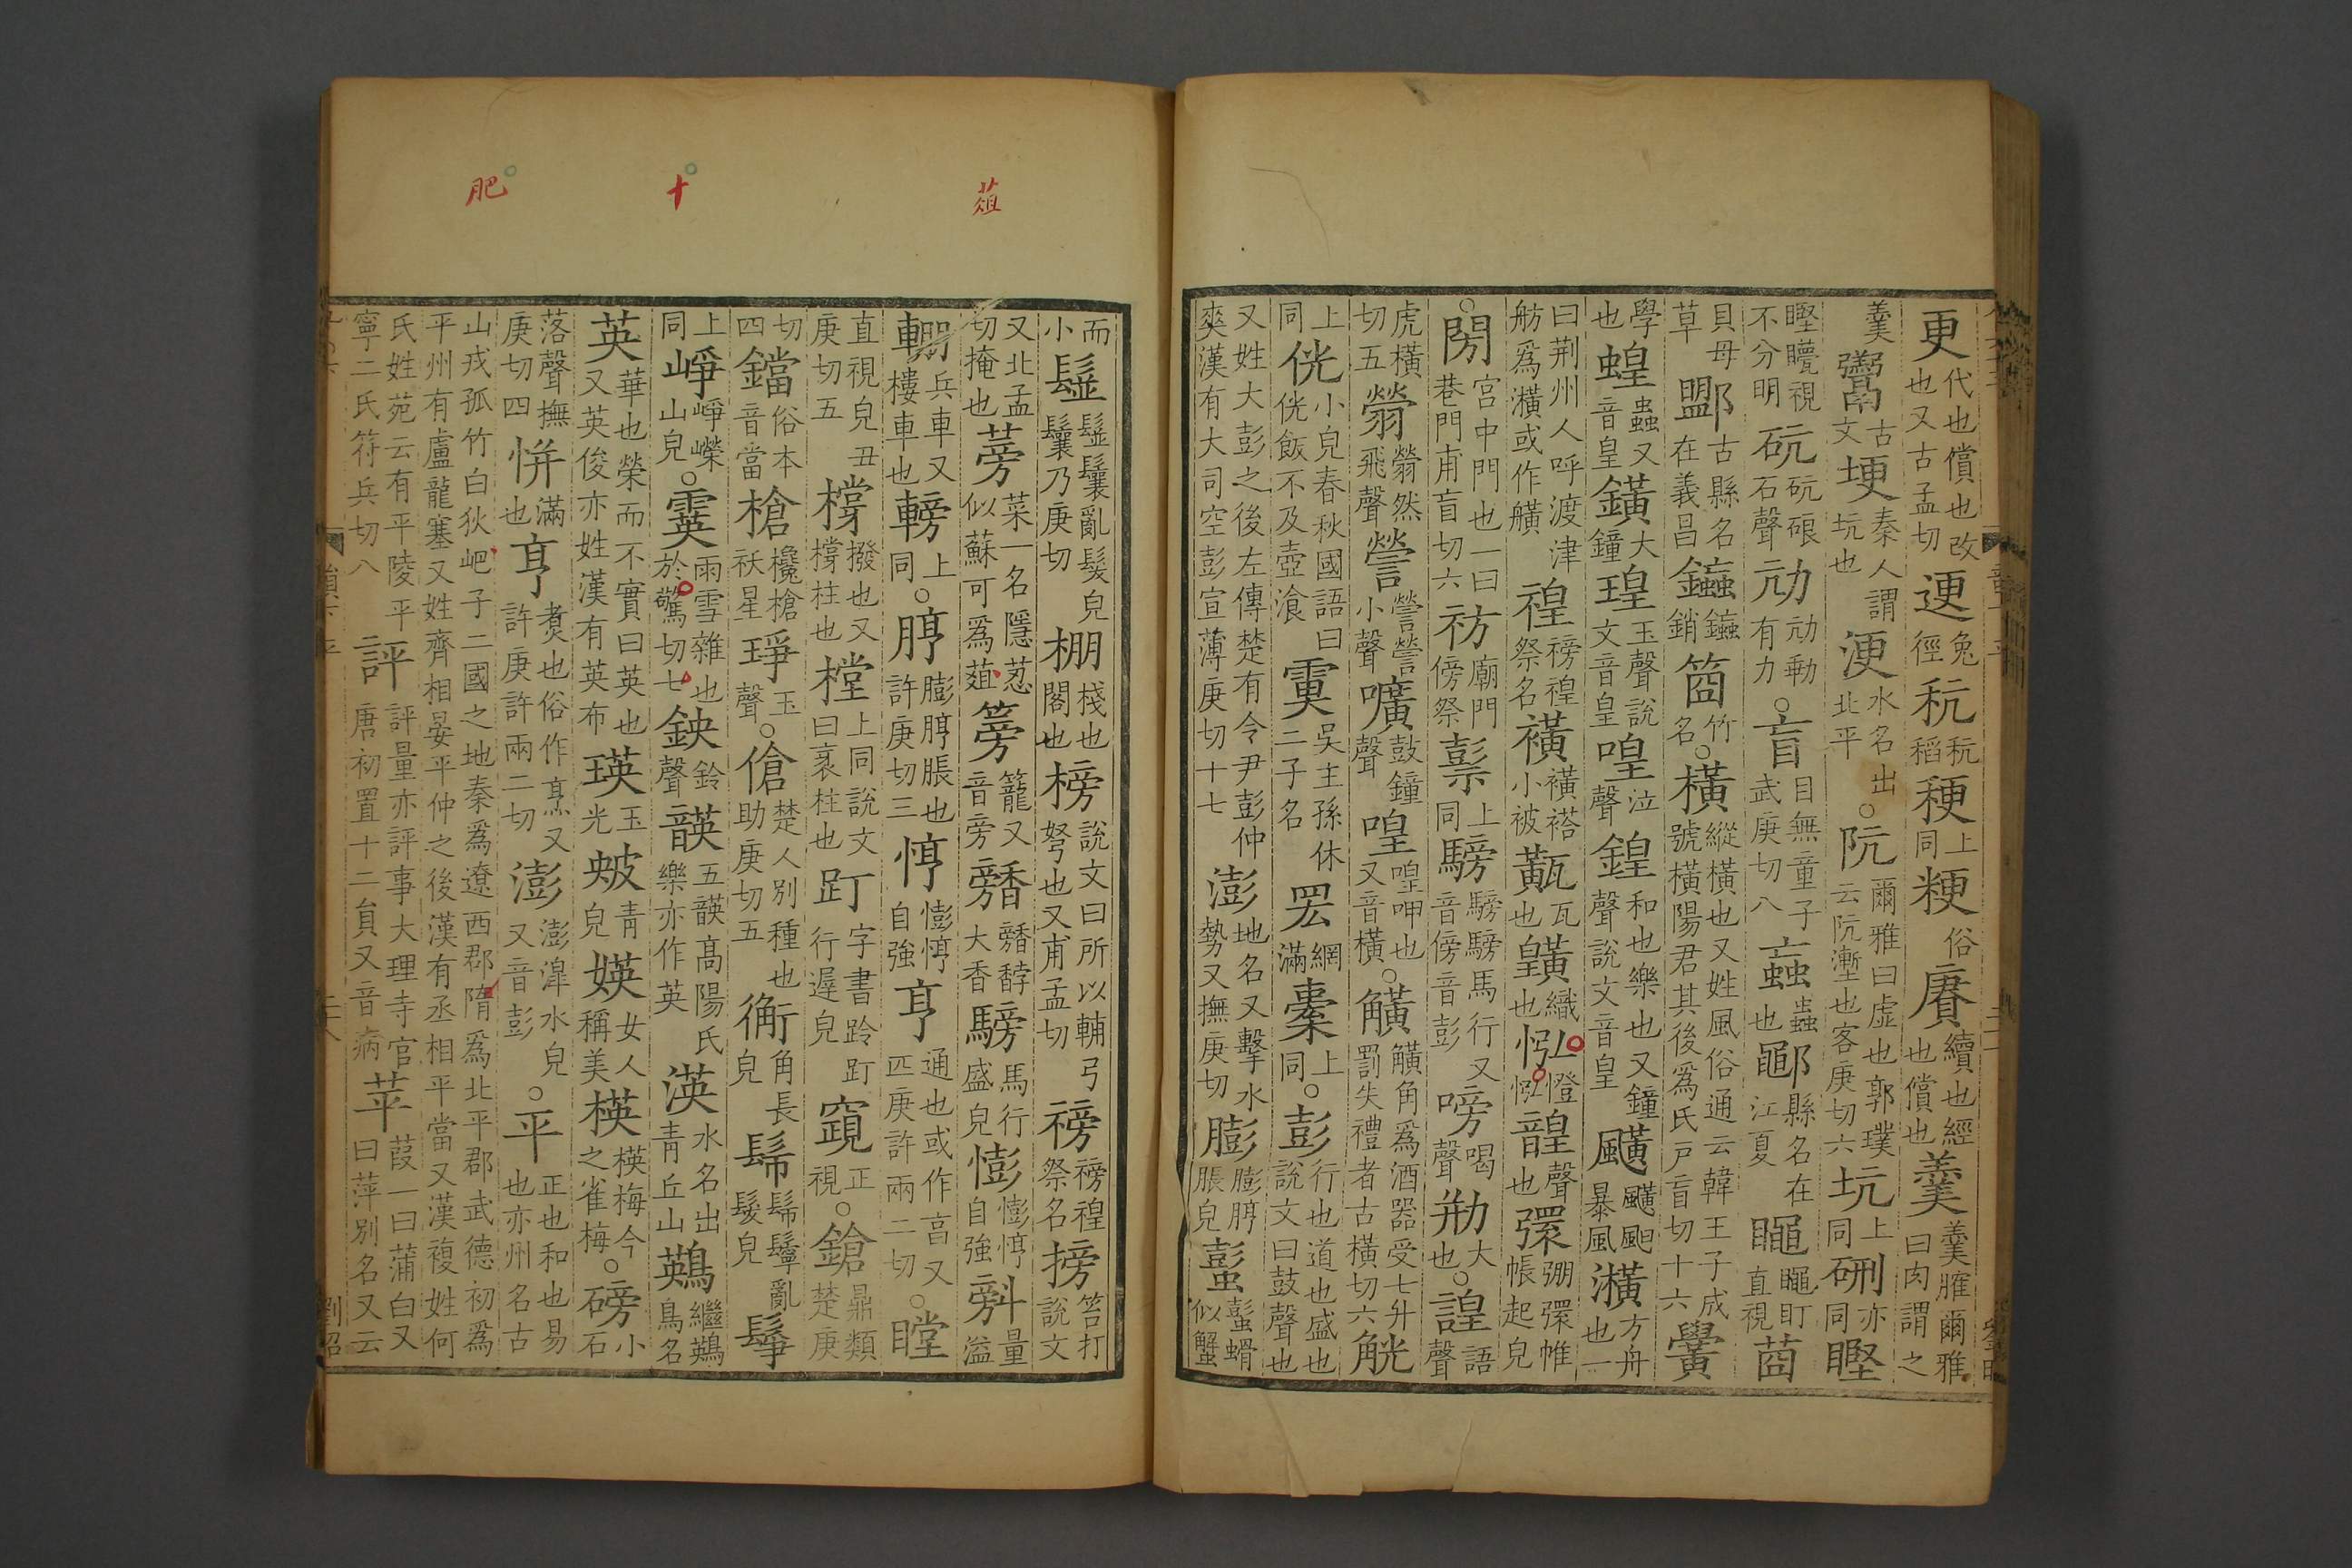 更代也償也改也又古孟切㪅兔徑秔秔稻稉上同粳俗賡續也經也償也羹羹臛爾雅曰肉謂之
羹𩱧古文埂秦人謂坑也浭水名出北平○阬爾雅曰虛也郭璞云阬壍也客庚切六坑上同硎亦同瞘
瞘矎視不分明砊砊硍石聲劥劥勭有力○盲目無童子武庚切八蝱蝱也鄳縣名在江夏䁅䁅盯直視莔
貝母草𨞩古縣名在義昌𨯳𨯳銷䈍竹名○橫縱橫也又姓風俗通云韓王子成號橫陽君其後爲氏戸盲切十六黌
學也蝗蟲又音皇鐄大鐘瑝玉聲說文音皇喤泣聲鍠和也樂也又鐘聲說文音皇䬝䬝䫻暴風䌙方舟也一
曰荆州人呼渡津舫爲䌙或作艎䄓䄓祭名䙆䙆褡小被㼹瓦也䊗織也𢗅韹聲也彋弸彋帷帳起皃
○閍宮中門也一曰巷門甫盲切六祊廟門傍祭𥛱上同騯騯騯馬行又音傍音彭嗙喝聲𠡮大也○諻語聲
虎橫切五䎕䎕然飛聲謍謍謍小聲嚝鼓鐘聲喤喤呷也又音橫○觵觵角爲酒器受七升罰失禮者古橫切六觥
上同侊小皃春秋國語曰侊飯不及壺飡𩃙吳主孫休二子名罛網滿𣡌上同○彭行也道也盛也說文曰鼓聲也
又姓大彭之後左傳楚有令尹彭仲爽漢有大司空彭宣薄庚切十七澎地名又擊水勢又撫庚切膨膨脝脹皃蟛蟛蜎似蟹
而小鬅鬅鬤亂髪皃鬤乃庚切棚棧也閣也榜說文曰所以輔弓弩也又甫孟切䄘䄘䄓祭名搒笞打說文
又北孟切掩也蒡菜一名隱荵似蘇可爲葅䈏籠又音旁䅭䅭馞大香騯馬行盛皃憉憉悙自強𣂆量溢
輣兵車又樓車也𨍩上同○脝膨脝脹也許庚切三悙憉悙自強亨通也或作亯又匹庚許兩二切○瞠
直視皃丑庚切五橕撥也又橕柱也樘上同說文曰衺柱也䟓字書跉䟓行遲皃竀正視○鎗鼎類楚庚
切四鐺俗本音當槍欃槍祅星琤玉聲○傖楚人別種也助庚切五䚘角長皃䯳䯳鬇亂髮皃鬇
上同崢崢嶸山皃○霙雨雪雜也於驚切七鉠鈴聲韺五韺高陽氏樂亦作英渶水名出青丘山鶧繼鶧鳥名
英華也榮而不實曰英也又英俊亦姓漢有英布瑛玉光䖧青皃媖女人稱美楧楧梅今之雀梅○磅小石
落聲撫庚切四恲滿也亨煑也俗作烹又許庚許兩二切澎澎濞水皃又音彭○平正也和也易也亦州名古
山戎孤竹白狄肥子二國之地秦爲遼西郡隋爲北平郡武德初爲平州有盧龍塞又姓齊相晏平仲之後漢有丞相平當又漢複姓何
氏姓苑云有平陵平寧二氏符兵切八評評量亦評事大理寺官唐初置十二員又音病苹葭一曰蒲白又曰萍別名又云
葅
十
肥
劉昭